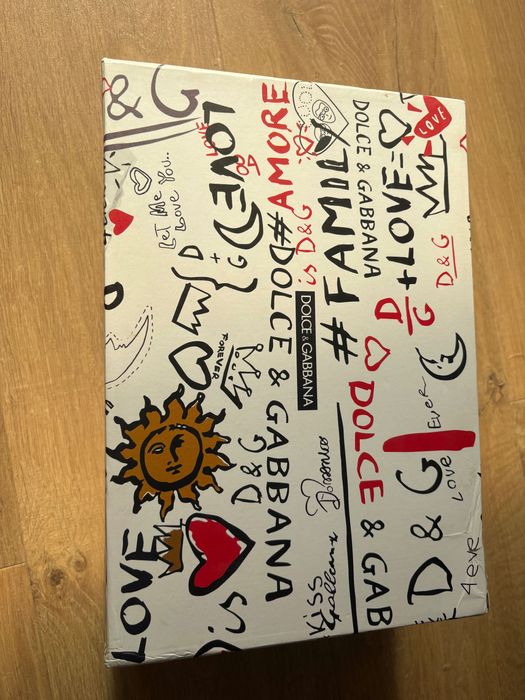 LOVE
D & G
4 eve
LOVE EVER
♡=LOVE
D + G
D & G
D ♡ DOLCE & GAB
DOLCE & GABBANA
# FAMILY
DOLCE & GABBANA
is D&G
AMORE
#DOLCE & GABBANA
Domenico
KISS
LOVE
LOVE
D&G
{D + G}
FOREVER
is
LET ME
Love you..
& G
D
LOVE